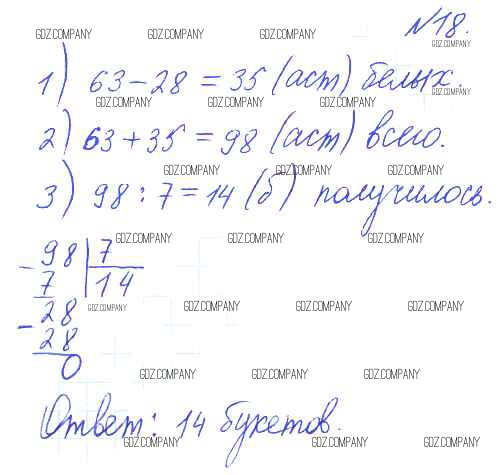 GDZ.COMPANY GDZ.COMPANY GDZ.COMPANY №18.
GDZ.COMPANY
1) 63 - 28 = 35 (аст) белых.
GDZ.COMPANY
GDZ.COMPANY GDZ.COMPANY GDZ.COMPANY
2) 63 + 35 = 98 (аст) всего.
GDZ.COMPANY GDZ.COMPANY GDZ.COMPANY
3) 98 : 7 = 14 (б) получилось.
GDZ.COMPANY GDZ.COMPANY GDZ.COMPANY
- 98 | 7
7 | 14
GDZ.COMPANY GDZ.COMPANY GDZ.COMPANY GDZ.COMPANY
- 28
28
0
GDZ.COMPANY GDZ.COMPANY GDZ.COMPANY
Ответ: 14 букетов.
GDZ.COMPANY GDZ.COMPANY GDZ.COMPANY